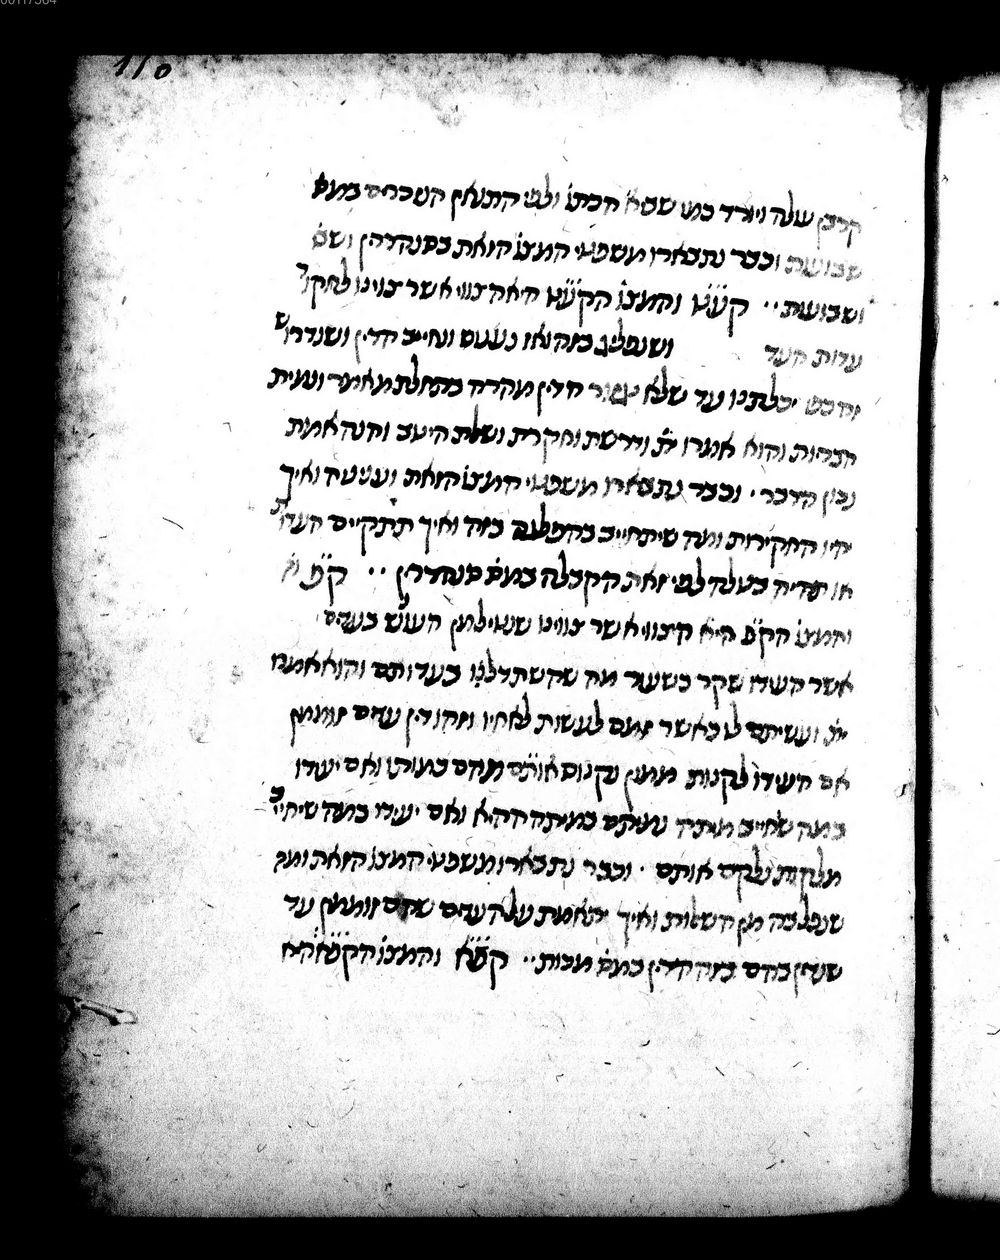 110
קרבן עולה ויורד כמו שבא הכתו׳ ולפי התנאין הנזכרים במס׳
שבועות וכבר נתבארו משפטי המצו׳ הזאת בסנהדרין ושם
ושבועות·· קע״ט והמצו׳ הקע״ט היא הצווי אשר צוינו לחקור
עדות העד ושנפליג בזה ואז נענוש ונחייב הדין ושנדרוש
יכלתנו עד שלא הדין מהרה בתחלת מאמר ועמית
הבריות והוא אמרו ית׳ ודרשת וחקרת ושאלת היטב והנה אמת
נכון הדבר · וכבר נתבארו משפטי המצו׳ הזאת ועניניה ואיך
יהיו החקירות ומה שיתחייב בהפלגה בזה ואיך תתקיים העדות
או תהיה בטלה לפי זאת הקבלה במס׳ סנהדרין ·· ק״פ
והמצו׳ הק״פ היא הצווי אשר צווינו שנשי׳ לתן העונש בעדים
אשר העידו שקר כשעור מה שהשתדלנו בעדותם והוא אמרו
ית׳ ועשיתם לו כאשר זמם לעשות לאחיו וזהו דין עדים זוממין
אם העידו לקנות ממון נקנוס אותם מהם כמותו ואם יעידו
במה שחייב מיתה נמיתם במיתה ההיא ואם יעידו במה שיחייב
מלקות נלקם אותם · וכבר נתבארו משפטי המצו׳ הזאת ומה
שנפל בה מן השאלות ואיך יתאמת על העדים שהם זוממין עד
שנדין בהם בזה הדין במס׳ מכות·· קפ״א והמצו׳ הקפ״א היא